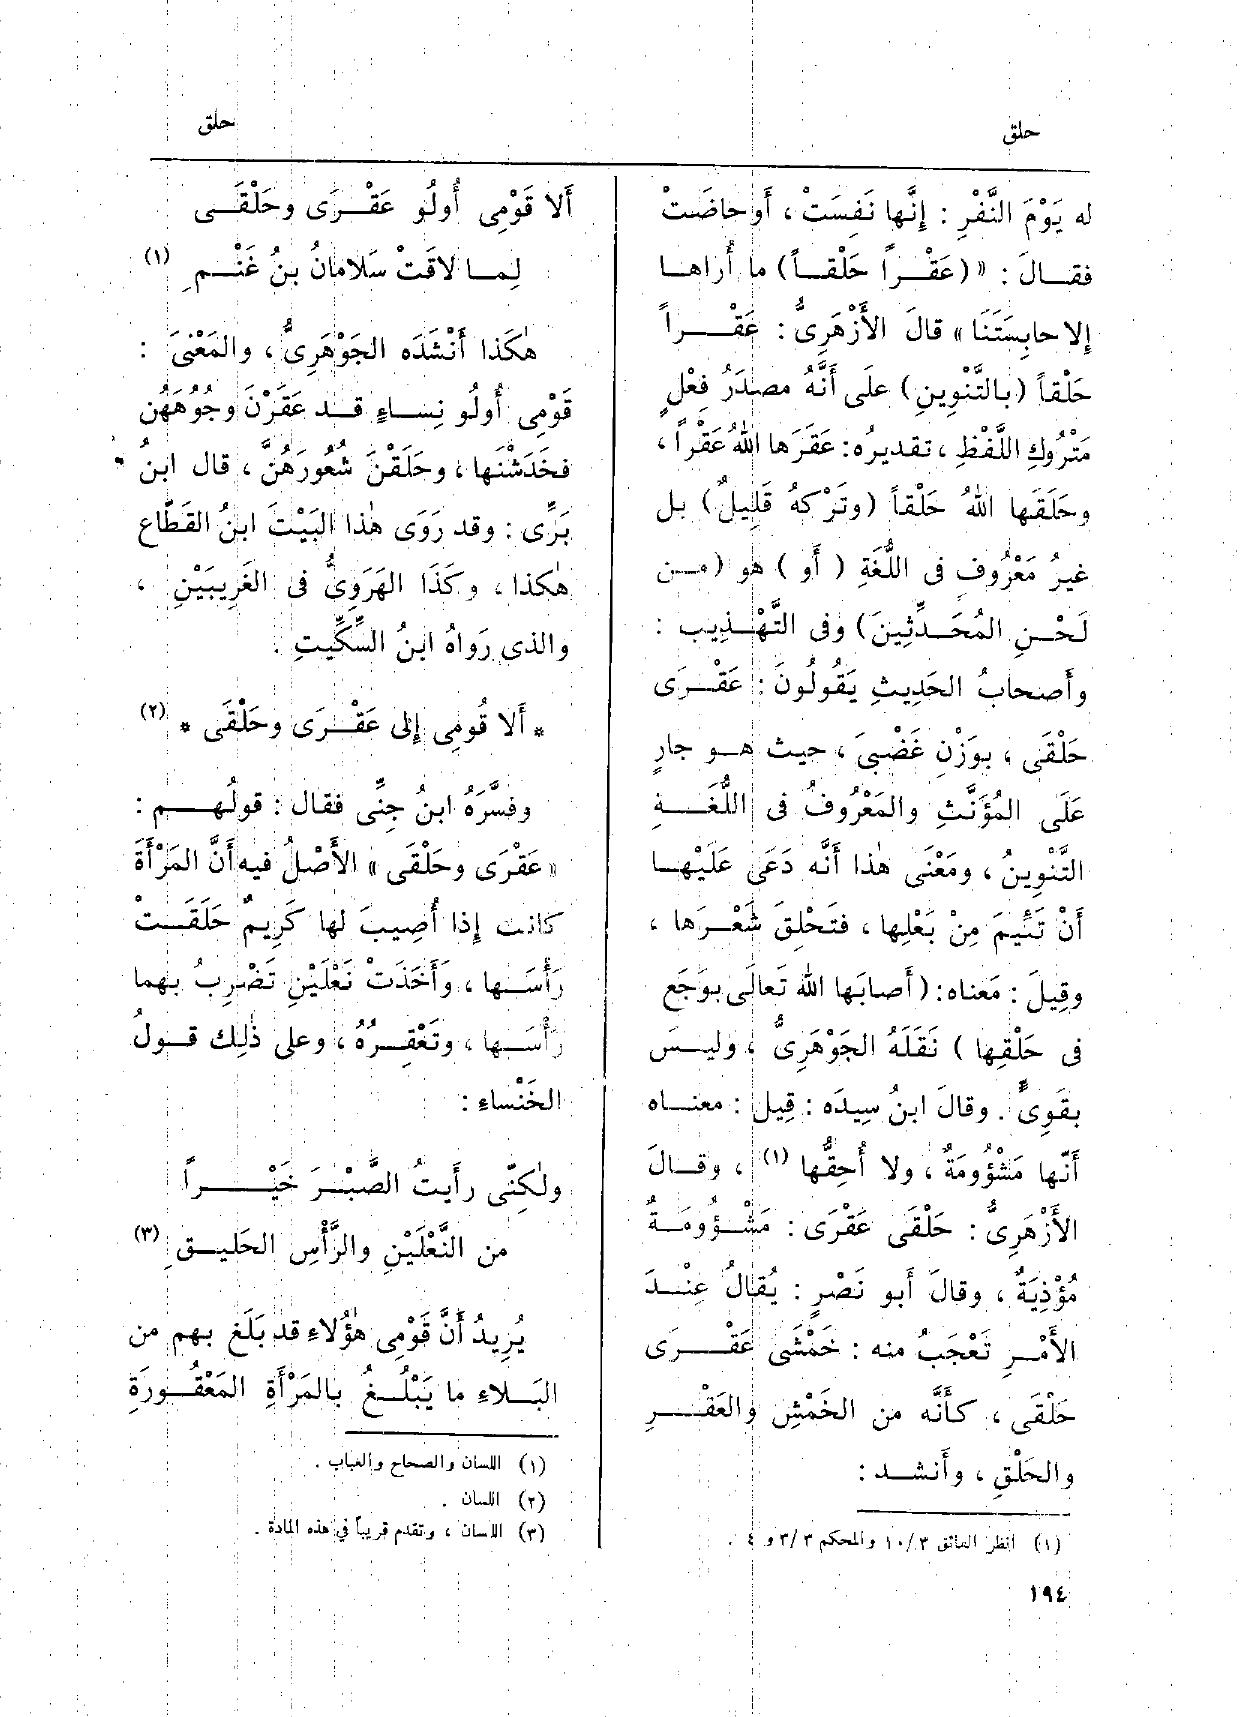 حلق
حلق
له يَوْمَ النَّفْرِ : إِنَّها نَفِسَتْ ، أَو حاضَتْ
فقالَ : « (عَقْراً حَلْقاً) ما أُراها
إلا حابِسَتَنَا » قالَ الأَزْهَرِىُّ : عَقْراً
حَلْقاً (بالتَّنْوِينِ) علَى أَنَّهُ مصدَرُ فِعْلٍ
مَتْرُوكِ اللَّفْظِ ، تقديرُه: عَقَرَها اللهُ عَقْراً ،
وحَلَقَها اللهُ حَلْقاً (وتَرْكهُ قَلِيلٌ) بل
غيرُ مَعْرُوفٍ فى اللُّغَةِ ( أَو ) هُو (من
لَحْنِ المُحَدِّثِينَ) وفى التَّهْذِيب :
وأَصحابُ الحَدِيثِ يَقُولُونَ : عَقْرَى
حَلْقَى ، بوَزْنِ غَضْبىَ ، حيث هو جارٍ
عَلَى المُؤَنَّثِ والمَعْرُوفُ فى اللُّغَةِ
التَّنْوِينُ ، ومَعْنَى هٰذا أَنَّه دَعَى عَلَيْها
أَنْ تَئِيمَ مِنْ بَعْلِها ، فتَحْلِقَ شَعْرَها ،
وقِيلَ : مَعناه: ( أَصابَها اللهُ تَعالَى بوَجَعٍ
فى حَلْقِها ) نَقَلَهُ الجَوْهَرِىُّ ، وليسَ
بقَوِىٍّ . وقالَ ابنُ سِيدَه : قِيل : معناه
أَنّها مَشْؤُومَةٌ ، ولا أُحِقُّها (١) ، وقالَ
الأَزْهَرِىُّ : حَلْقَى عَقْرَى : مَشْؤُومَةٌ
مُؤْذِيَةٌ ، وقالَ أَبو نَصْرٍ : يُقالُ عِنْدَ
الأَمْرِ تَعْجَبُ منه : خَمْشَى عَقْرَى
حَلْقَى ، كأَنَّه من الخَمْشِ والعَقْرِ
والحَلْقِ ، وأَنشد :
(١) انظر الفائق ١٠/٣ والمحكم ٣/٣ و ٤ .
١٩٤
أَلا قَوْمِى أُولُو عَقْرَى وحَلْقَى
لِما لاقَتْ سَلامانُ بنُ غَنْمِ (١)
هٰكَذا أَنْشَدَه الجَوْهَرِىُّ ، والمَعْنىَ :
قَوْمِى أُولُو نِساءٍ قد عَقَرْنَ وجُوهَهُن
فخَدَشْنَها ، وحَلَقْنَ شُعُورَهُنَّ ، قال ابنُ
بَرِّى : وقد رَوَى هٰذا البَيْتَ ابنُ القَطّاع
هٰكذا ، وكَذَا الهَرَوِىُّ فى الغَرِيبَيْنِ ،
والذى رَواهُ ابنُ السِّكِّيتِ :
* أَلا قُومِى إِلى عَقْرَى وحَلْقَى * (٢)
وفسَّرَهُ ابنُ جِنِّى فقال : قولُهم :
« عَقْرَى وحَلْقَى » الأَصْلُ فيه أَنَّ المَرْأَةَ
كانت إِذا أُصِيبَ لها كَرِيمٌ حَلَقَتْ
رَأْسَها ، وَأَخَذَتْ نَعْلَيْنِ تَضْرِبُ بهما
رَأْسَها ، وتَعْقِرُهُ ، وعلى ذٰلِك قولُ
الخَنْساءِ :
ولٰكِنّى رأَيتُ الصَّبْرَ خَيْراً
من النَّعْلَيْنِ والرَّأْسِ الحَلِيقِ (٣)
يُرِيدُ أَنَّ قَوْمِى هٰؤُلاءِ قد بَلَغ بهم من
البَلاءِ ما يَبْلُغُ بالمَرْأَةِ المَعْقُورَةِ
(١) اللسان والصحاح والعباب .
(٢) اللسان .
(٣) اللسان ، وتقدم قريباً فى هذه المادة .